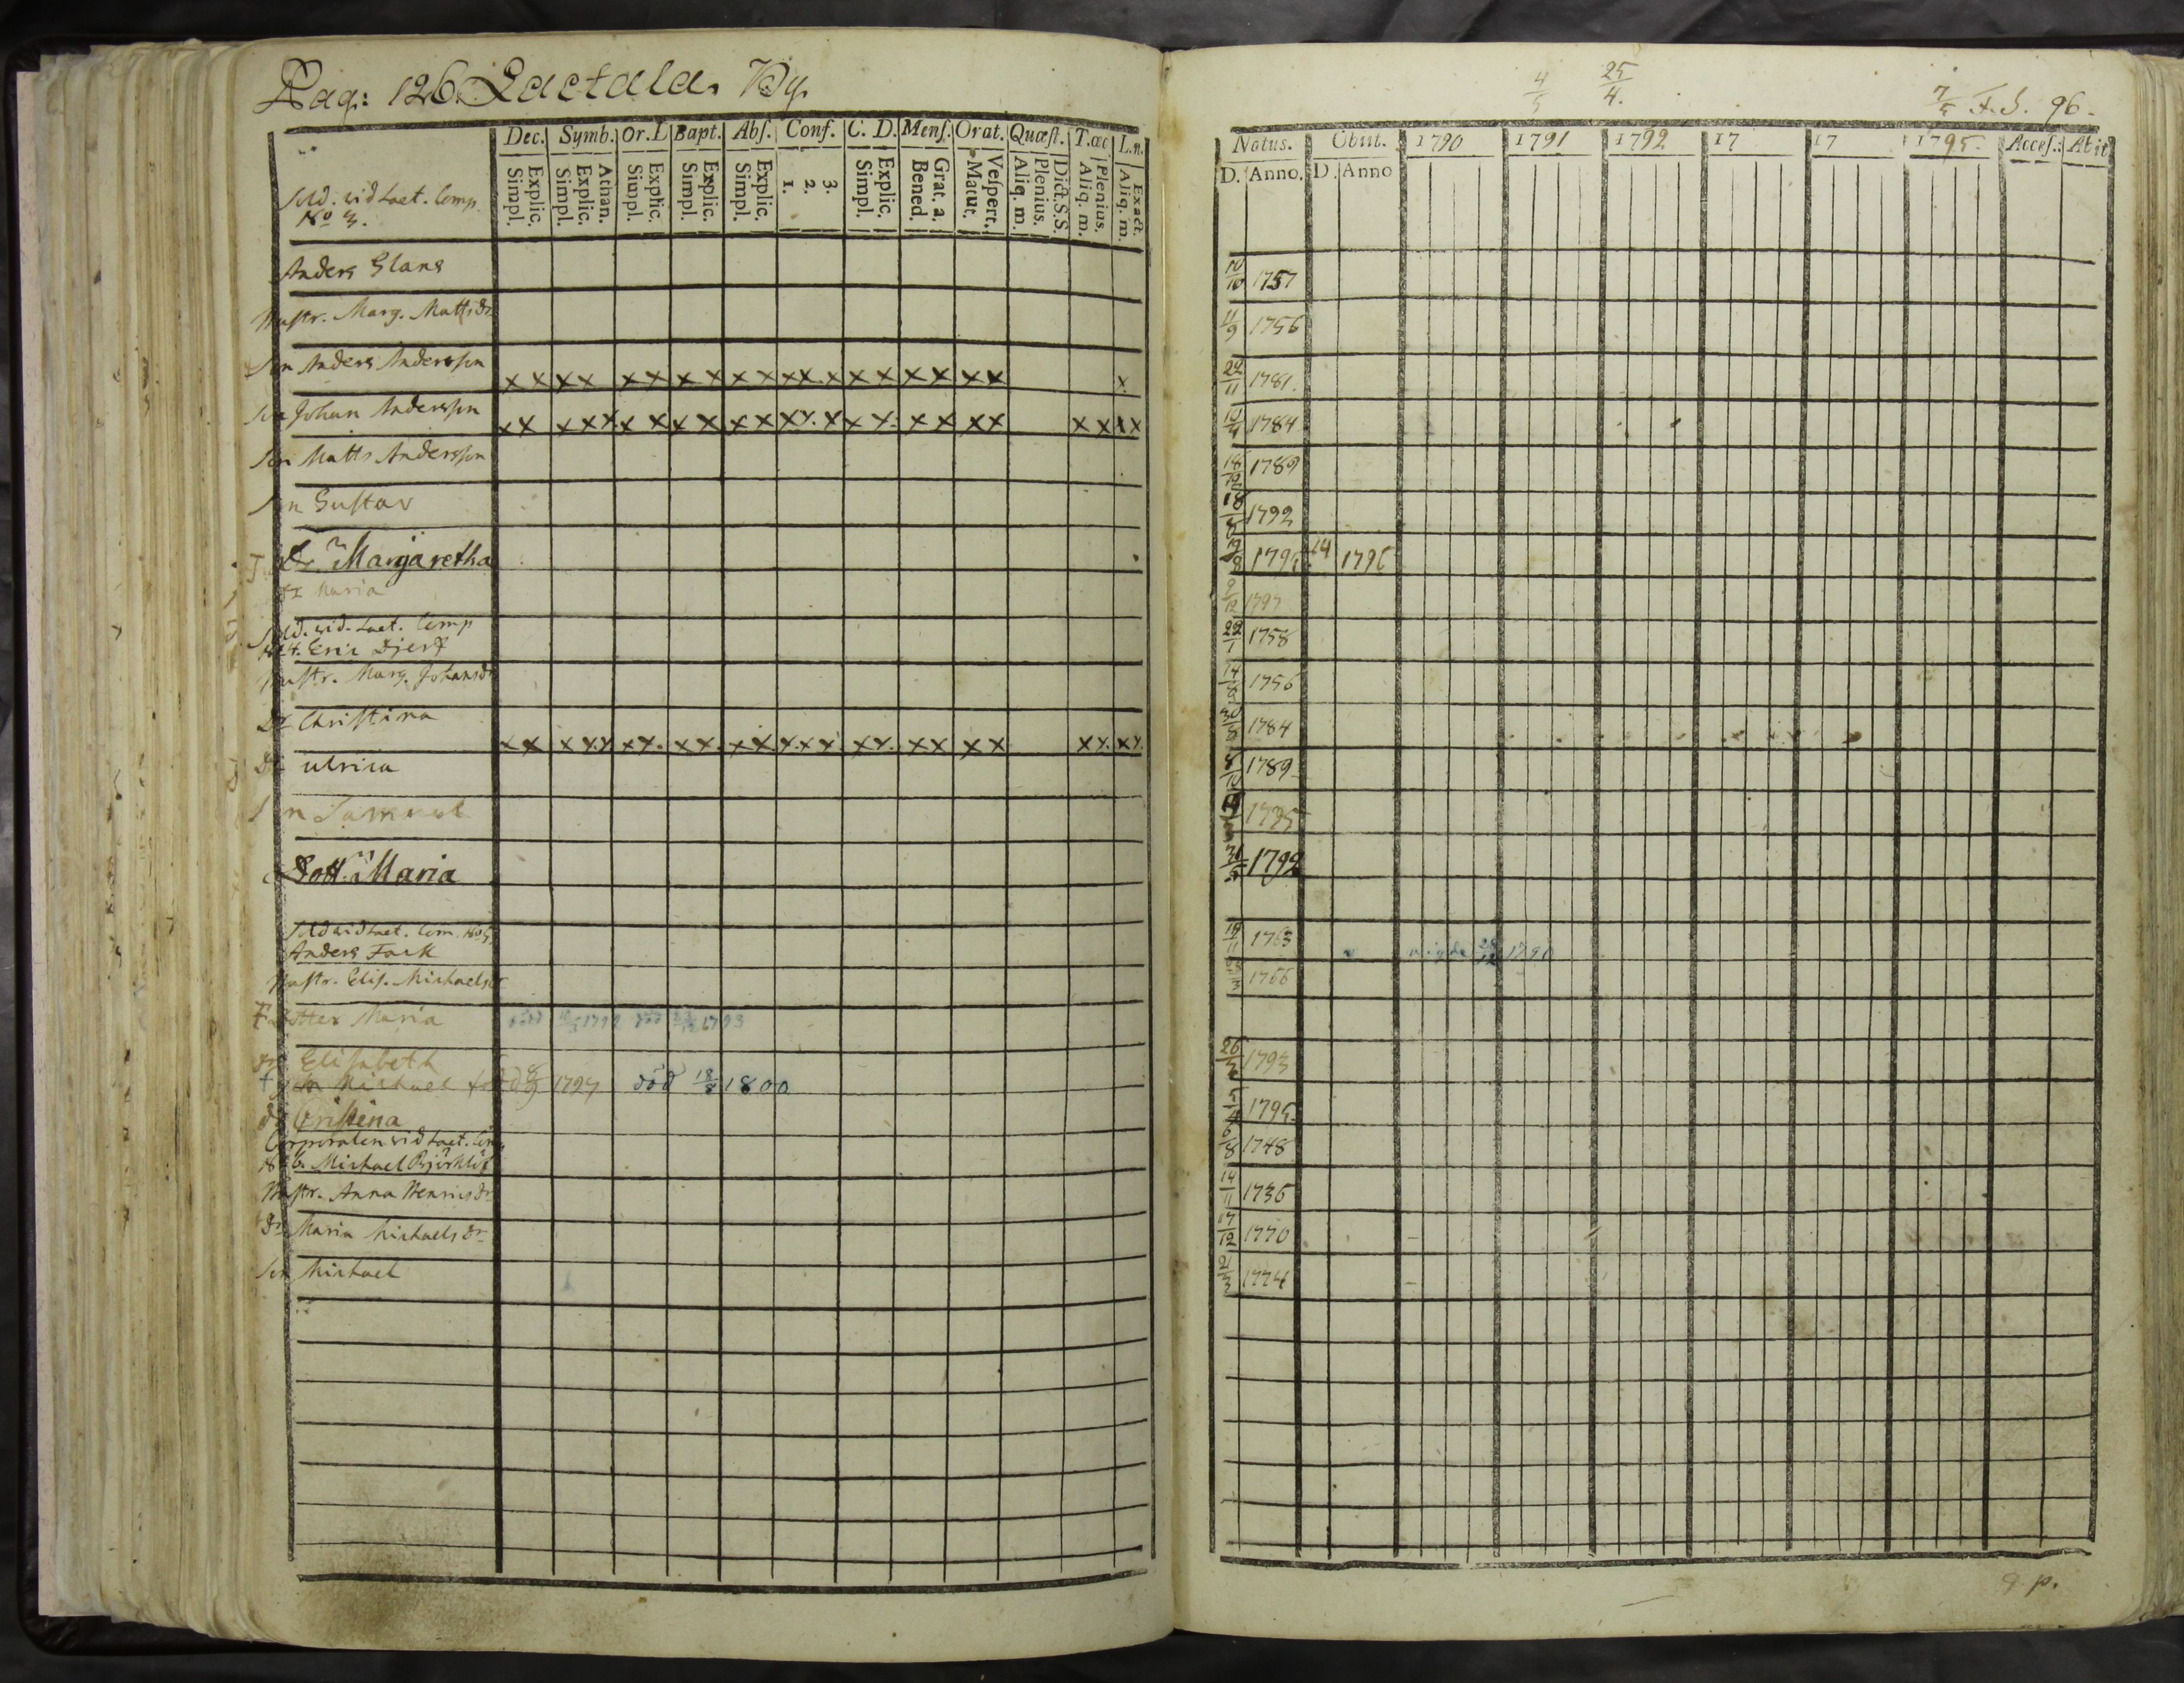 Pag: 126. Lactala. By.
Dec. Symb. Or. L Bapt. Abſ. Conf. C. D. Menſ. Orat. Quæſt. T.œc L.n.
Explic. Simpl. Athan. Explic. Simpl. Explic. Simpl. Explic. Simpl. Explic. Simpl. 3. 2. 1. Explic. Simpl. Grat. a. Bened. Veſpert. Matut. Dict.S.S. Plenius. Aliq. m. Plenius. Aliq. m. Exact. Aliq. m.
Sold. vid Laet. Comp.
No 3.
Anders Glans
Hustr. Marg. Matts dr
Son Anders Andersson
x x x x x x x x x x x x x x x x x x x x
Son Johan Andersson
x x x x x x x x x x x x x x x x x x x x x x x x
Son Matts Andersson
Son Gustav
Dr Margaretha
Dr Maria
Sold. vid. Laet. Comp
No 4. Eric Djerf
Hustr. Marg. Johansdr
Dr Christina
x x x x x x x x x x x x x x x x x x x x x x x x
Dr Ulrica
Son Samuel
Dott. Maria
Sold vid Laet. Com. No 5.
Anders Fack
Hustr. Elis. Michaelsdr
† Dotter Maria född 1792 död 1793
Dr Elisabeth
† Son Michael född 8/9 1797 död 18/8 1800
Dr Cristina
Corporalen vid Laet. Comp
No 6. Michael Björklöf
Hustr. Anna Henricsdr
Dr Maria Michaelsdr
Son Michael
4/5 25/4. 7/5 F.S. 96.
Natus. Obiit. 1790 1791 1792 17 17 1795. Acceſ.: Abit
D. Anno. D. Anno
10/10 1757
11/9 1756
24/11 1781.
10/4 1784
18/12 1789
18 1792
19 1796 14 1796
9/12 1797
22/1 1758
14 1756
30 1784
8/10 1789
1795
1792
19/11 1763
vigde 28/12 1790
1766
26 1793
5/4 1795.
6/8 1748
14/11 1736
17/12 1770
21/3 1774
9 p.